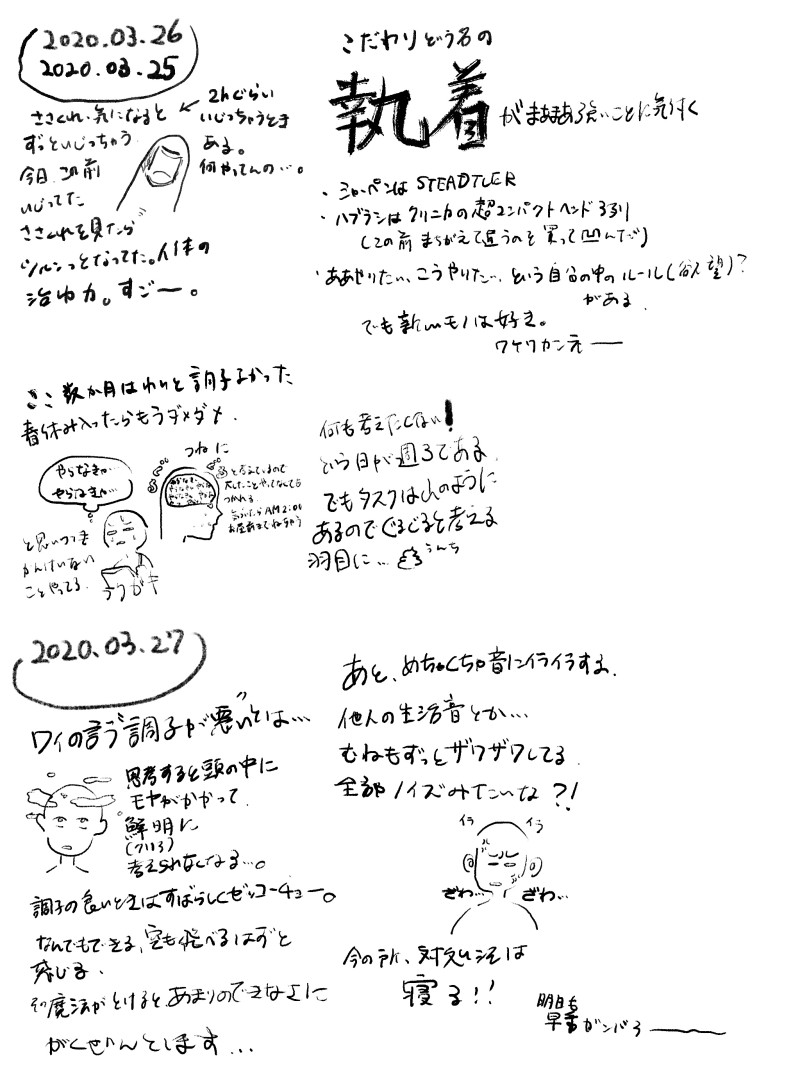 2020.03.26
2020.03.25
ささくれ、気になると
ずっといじっちゃう
今日、この前
いじってた
ささくれを見たら
ツルンっとなってた。人体の
治ゆ力。すごー。
← 2hぐらい
いじっちゃうとき
ある。
何やってんの…。
こだわりという名の
執着がまあまあ強いことに気付く
・シャーペンは STEADTLER
・ハブラシは クリニカの超コンパクトヘッド 3列
(この前 まちがえて違うのを買って凹んだ)
・ああやりたい、こうやりたい、という自分の中のルール(欲望)?
がある
でも新しいモノは好き。
ワケワカンネー
ここ数か月はわりと調子よかった
春休み入ったらもうダメダメ.
やらなきゃ…
やらなきゃ…
と思いつつも
かんけいないことやってる.
ラクガキ
つねに
と考えているので
大したことやってなくても
つかれる
気がついたらAM2:00
お昼前までねちゃう
何も考えたくない!
という日が週3である.
でもタスクは山のように
あるのでぐるぐると考える
羽目に… うんち
2020.03.27
ワイの言う"調子が悪い"とは…
思考すると頭の中に
モヤがかかって
鮮明に
(クリア)
考えられなくなる…。
調子の良いときはすばらしくゼッコーチョー。
なんでもできる,空も飛べるはずと
感じる.
その魔法がとけると、あまりのできなさに
がくぜんとします…
あと、めちゃくちゃ音にイライラする.
他人の生活音とか…
むねもずっとザワザワしてる.
全部ノイズみたいな?!
イラ イラ
ざわ… ざわ…
今の所、対処法は
寝る!!
明日も
早番ガンバろー